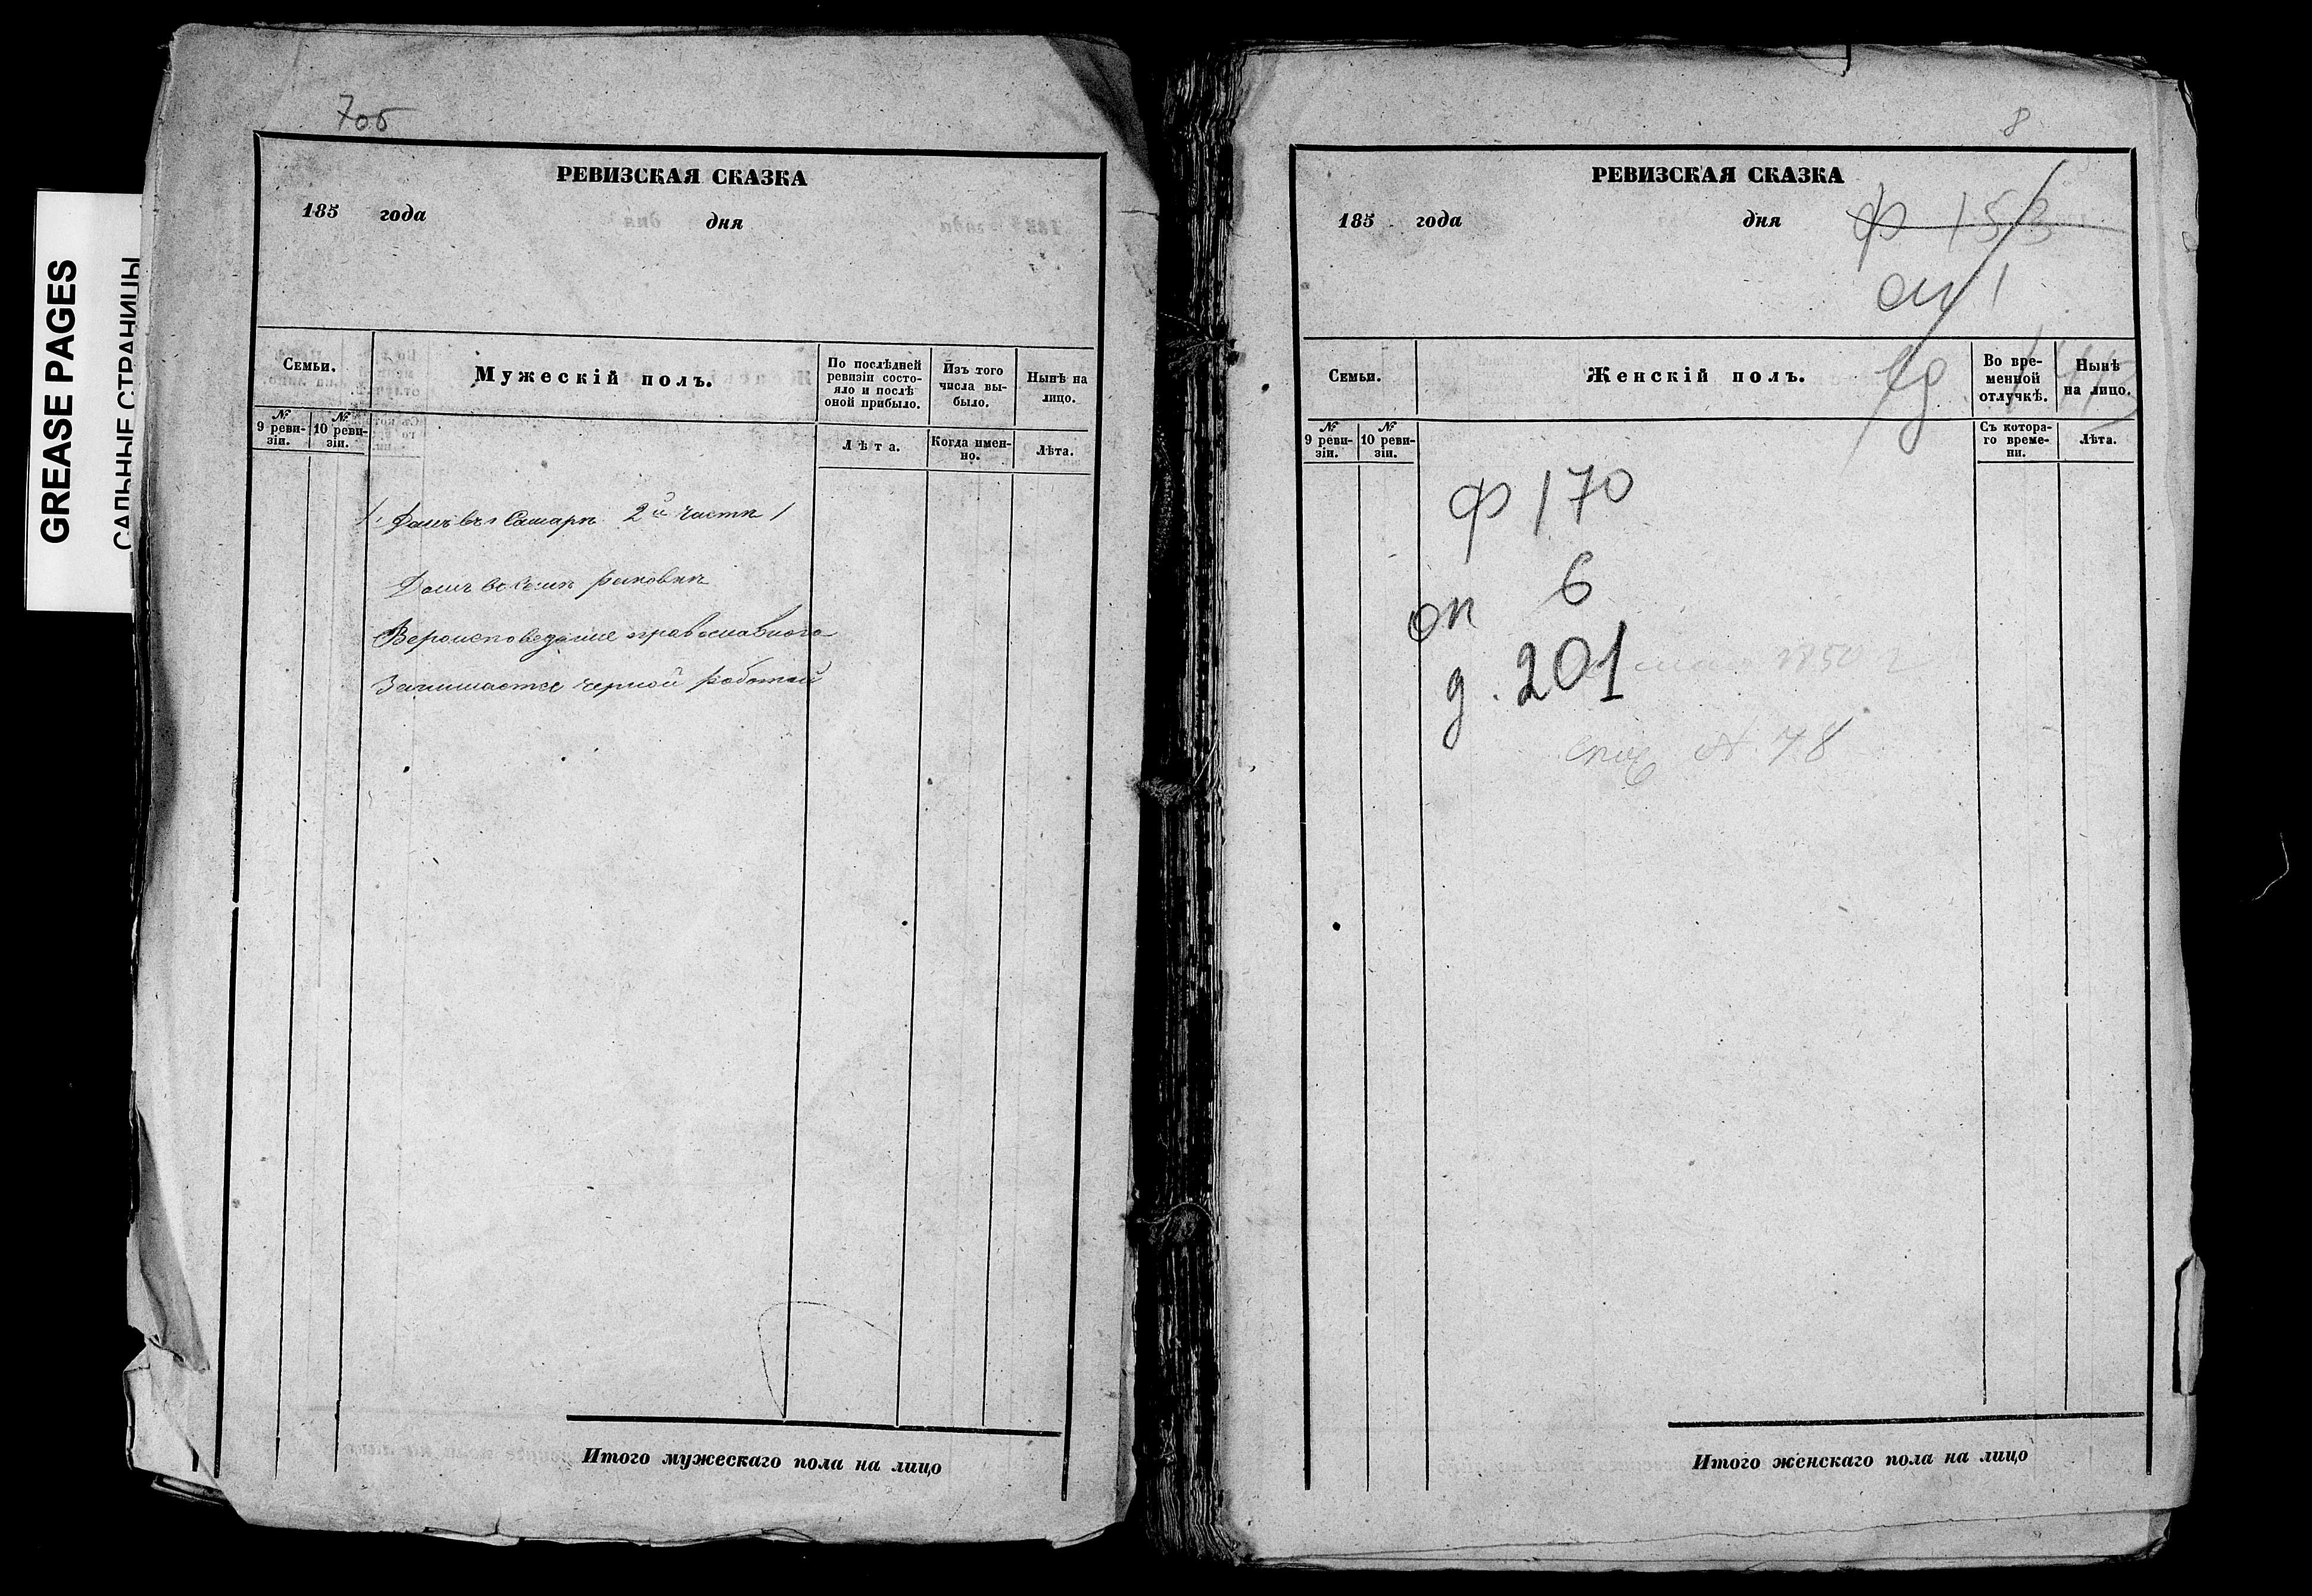 GREASE PAGES
САЛЬНЫЕ СТРАНИЦЫ
7об
РЕВИЗСКАЯ СКАЗКА
185 года дня
Семьи.
Мужескій полъ.
По послѣдней ревизіи состо-
яло и послѣ
оной прибыло.
Изъ того
числа вы-
было.
Нынѣ на
лицо.
№ 9 реви-
зіи.
№ 10 реви-
зіи.
Лѣта.
Когда имен-
но.
Лѣта.
Домъ въ г Самарѣ 2й части
Домъ
Вероисповедание православного
Занимается черной работой
Итого мужескаго пола на лицо
8
РЕВИЗСКАЯ СКАЗКА
185 года дня
ф 153
оп 1
Семьи.
Женскій полъ.
Во вре-
менной
отлучкѣ.
Нынѣ
на лицо.
№ 9 реви-
зіи.
№ 10 реви-
зіи.
Съ котора-
го време-
ни.
Лѣта.
Ф 170
оп 6
д. 201
1850
№ 78
Итого женскаго пола на лицо